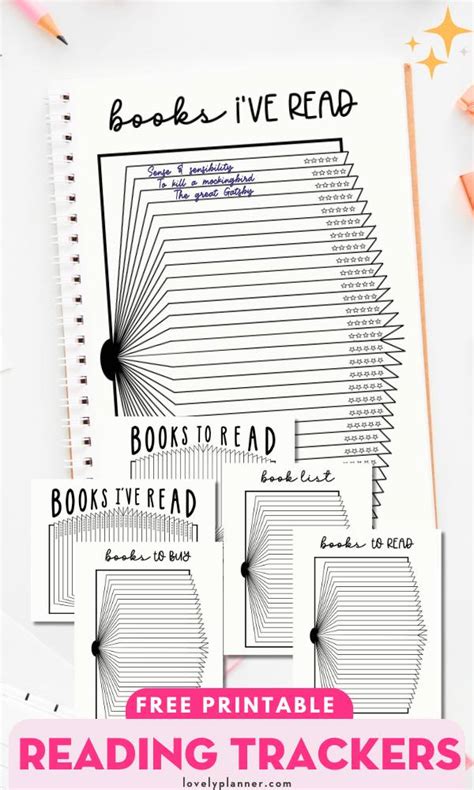 books I'VE READ
Sense & sensibility
To kill a mockingbird
The great Gatsby
BOOKS TO READ
book list
BOOKS I'VE READ
books to BUY
books to READ
FREE PRINTABLE
READING TRACKERS
lovelyplanner.com